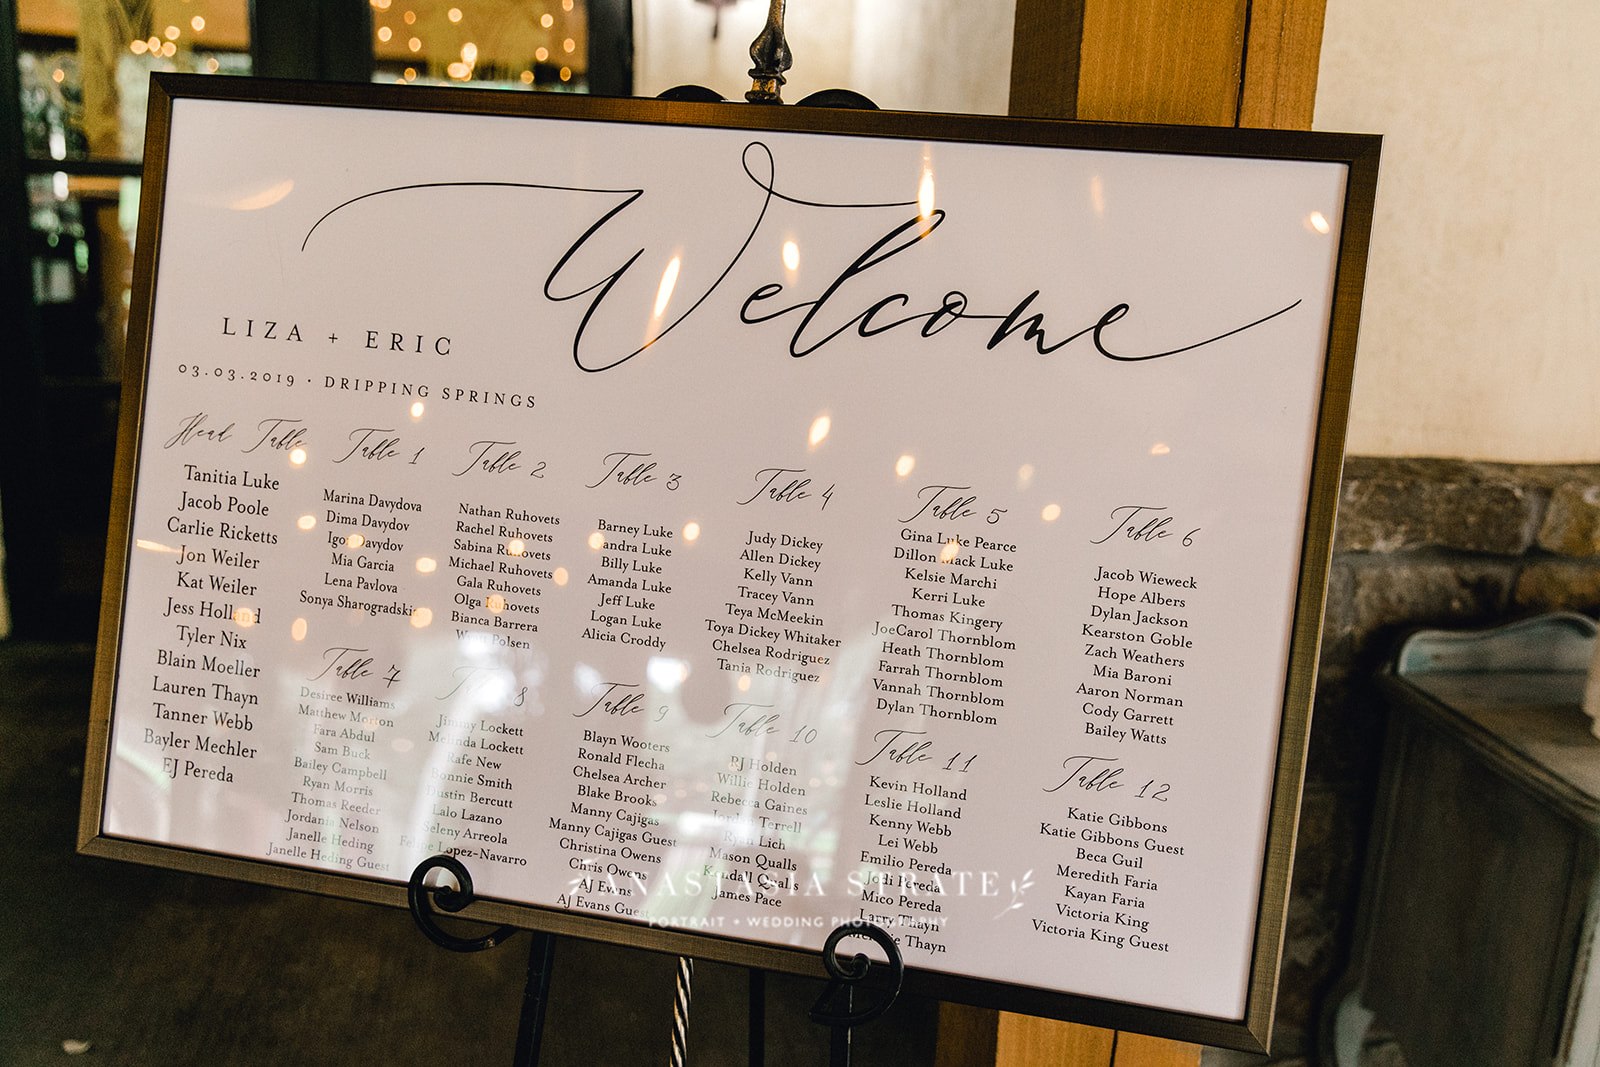 Welcome
LIZA + ERIC
03.03.2019 · DRIPPING SPRINGS
Head Table
Tanitia Luke
Jacob Poole
Carlie Ricketts
Jon Weiler
Kat Weiler
Jess Holland
Tyler Nix
Blain Moeller
Lauren Thayn
Tanner Webb
Bayler Mechler
EJ Pereda
Table 1
Marina Davydova
Dima Davydov
Igor Davydov
Mia Garcia
Lena Pavlova
Sonya Sharogradski
Table 2
Nathan Ruhovets
Rachel Ruhovets
Sabina Ruhovets
Michael Ruhovets
Gala Ruhovets
Olga Ruhovets
Bianca Barrera
Polsen
Table 3
Barney Luke
Luke
Billy Luke
Amanda Luke
Jeff Luke
Logan Luke
Alicia Croddy
Table 4
Judy Dickey
Allen Dickey
Kelly Vann
Tracey Vann
Teya McMeekin
Toya Dickey Whitaker
Chelsea Rodriguez
Tania Rodriguez
Table 5
Gina Luke Pearce
Dillon Mack Luke
Kelsie Marchi
Kerri Luke
Thomas Kingery
JoeCarol Thornblom
Heath Thornblom
Farrah Thornblom
Vannah Thornblom
Dylan Thornblom
Table 6
Jacob Wieweck
Hope Albers
Dylan Jackson
Kearston Goble
Zach Weathers
Mia Baroni
Aaron Norman
Cody Garrett
Bailey Watts
Table 7
Desiree Williams
Matthew Morton
Fara Abdul
Sam Buck
Bailey Campbell
Ryan Morris
Thomas Reeder
Jordania Nelson
Janelle Heding
Janelle Heding Guest
Table 8
Jimmy Lockett
Melinda Lockett
Rafe New
Bonnie Smith
Dustin Bercutt
Lalo Lazano
Seleny Arreola
Felipe Lopez-Navarro
Table 9
Blayn Wooters
Ronald Flecha
Chelsea Archer
Blake Brooks
Manny Cajigas
Manny Cajigas Guest
Christina Owens
Chris Owens
AJ Evans
AJ Evans Guest
Table 10
PJ Holden
Willie Holden
Rebecca Gaines
Jordan Terrell
Ryan Lich
Mason Qualls
Kendall Qualls
James Pace
Table 11
Kevin Holland
Leslie Holland
Kenny Webb
Lei Webb
Emilio Pereda
Jodi Pereda
Mico Pereda
Larry Thayn
Thayn
Table 12
Katie Gibbons
Katie Gibbons Guest
Beca Guil
Meredith Faria
Kayan Faria
Victoria King
Victoria King Guest
ANASTASIA STRATE
PORTRAIT + WEDDING PHOTOGRAPHY